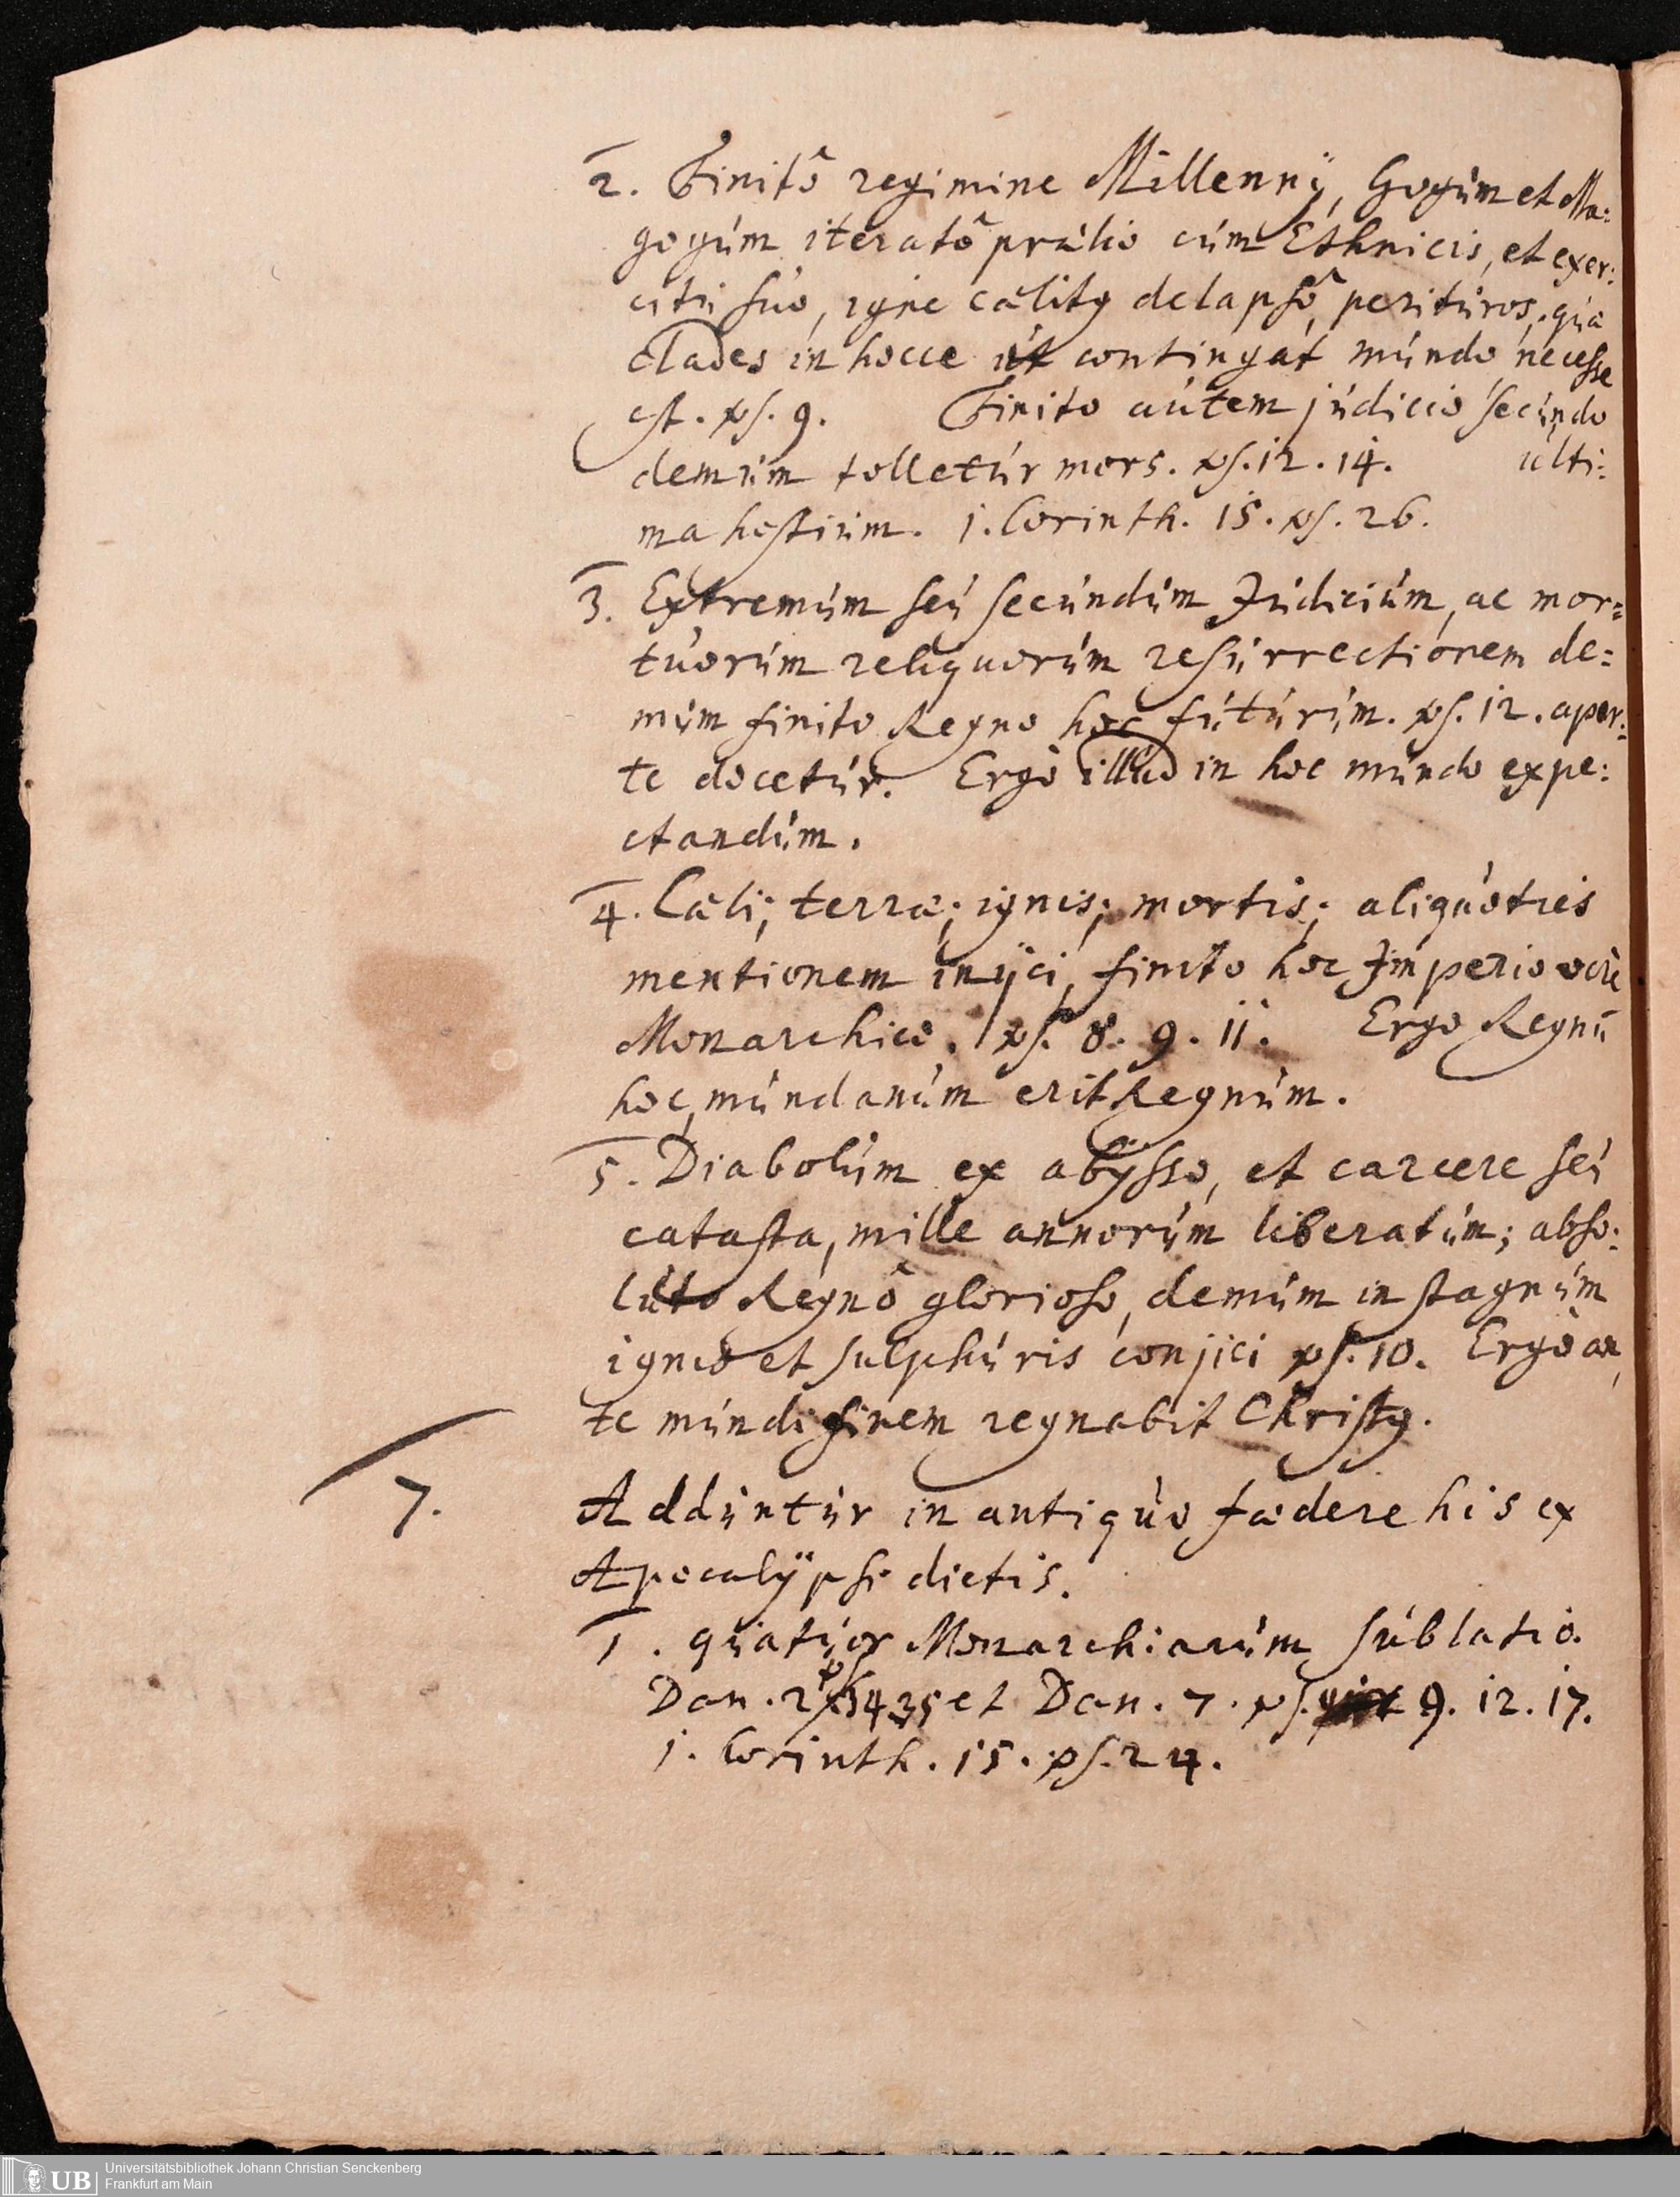 2. Finitô regimine Millennij, Gogum et Ma:
gogum iteratô prælio cum Ethnicis, et exer:
citu suo, igne cælitus delapsô, perituros, quæ
clades in hocce ut contingat mundo necesse
est. vs. 9. Finito autem judicio secundo
demum tolletur mors. vs. 12. 14. ulti:
ma hostium. 1. Corinth. 15. vs. 26.
3. Extremum seu secundum Judicium, ac mor=
tuorum reliquorum resurrectionem de=
mum finito Regno hoc futurum. vs. 12. aper:
te docetur. Ergò illud in hoc mundo expe:
ctandum.
4. Cæli; terræ; ignis; mortis; aliquoties
mentionem inijci, finito hoc Imperio verè
Monarchico. vs. 8. 9. 11. Ergo Regnū
hoc, mundanum erit Regnum.
5. Diabolum ex abÿsso, et carcere seu
catasta, mille annorum liberatum; abso:
luto Regnô glorioso, demum in stagnum
ignis et sulphuris conjici vs. 10. Ergò an
te mundi finem regnabit Christus.
7. Adduntur in antiquo fædere his ex
Apocalÿpsi dictis.
1. quatuor Monarchiarum sublatio.
Dan. 2 vs 34 35 et Dan. 7. vs. 9. 12. 17.
1. Corinth. 15. vs. 24.
UB Universitätsbibliothek Johann Christian Senckenberg
Frankfurt am Main